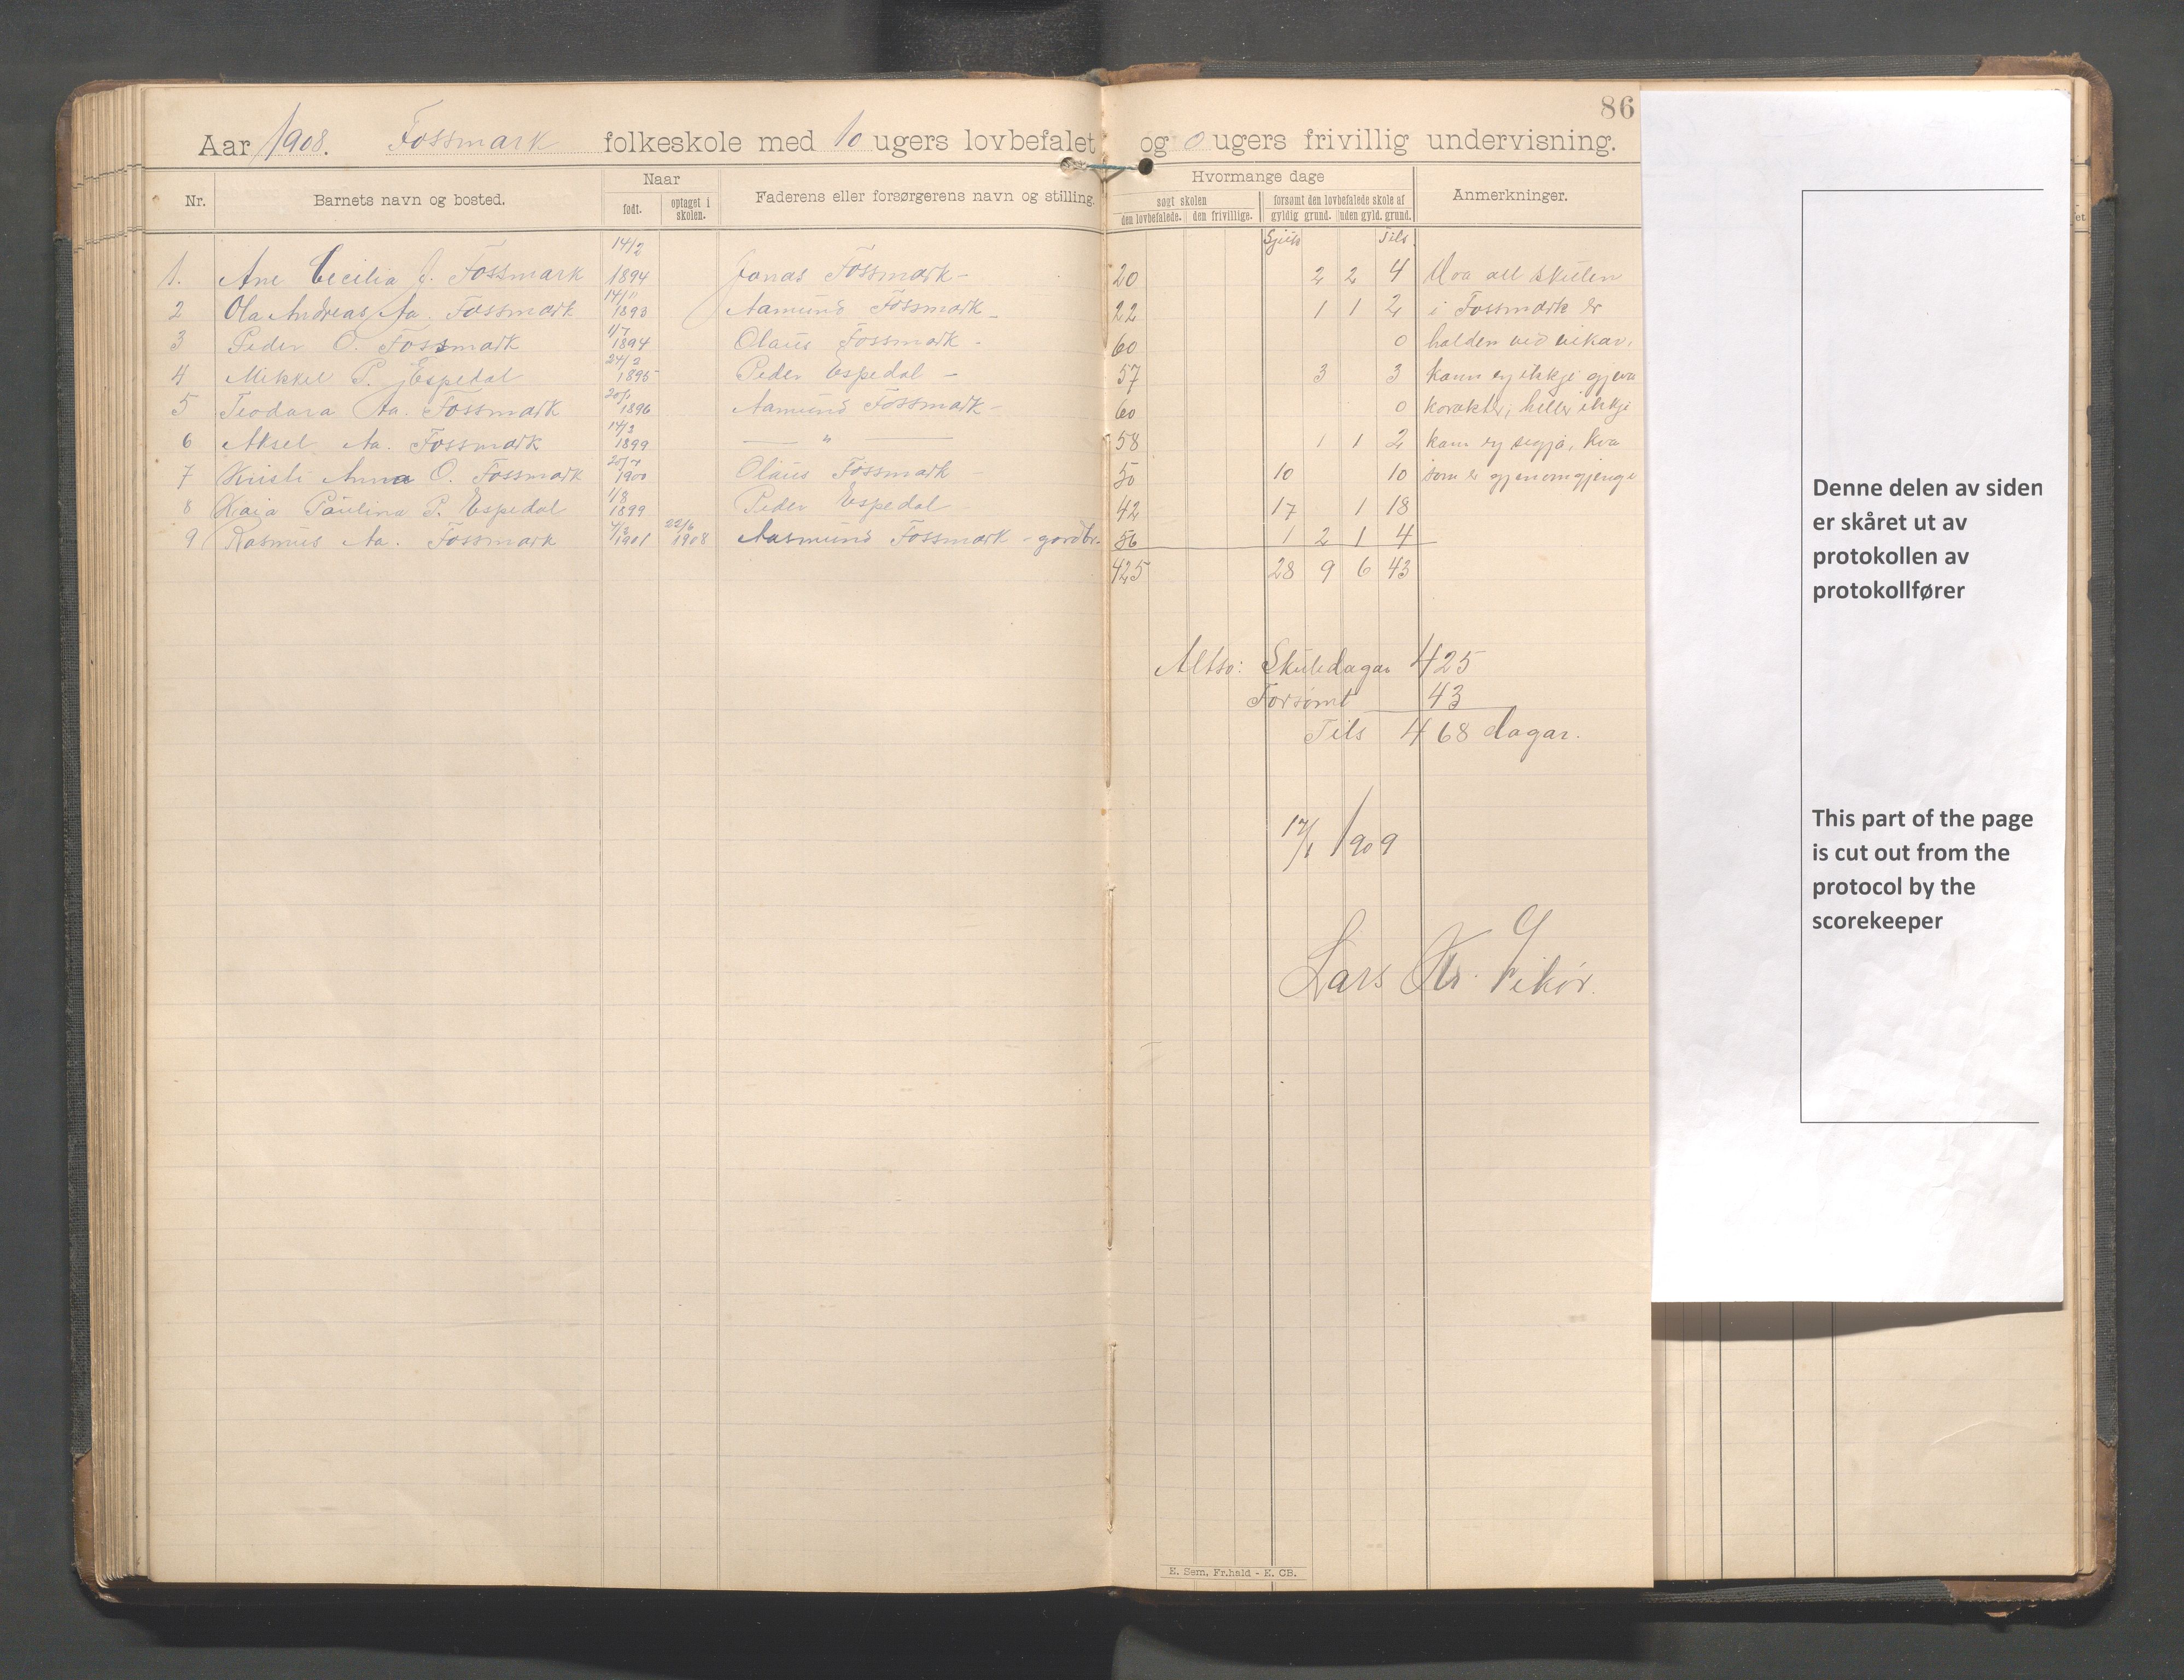 86
Aar 1908. Fossmark folkeskole med 10 ugers lovbefalet og 0 ugers frivillig undervisning.
Nr. Barnets navn og bosted. Naar født. optaget i skolen. Faderens eller forsørgerens navn og stilling. Hvormange dage søgt skolen den lovbefalede. den frivillige. forsømt den lovbefalede skole af gyldig grund. uden gyld. grund. Anmerkninger.
14/2 Sjuis Tils.
1. Ane Cecilia J. Fossmark 1894 Jonas Fossmark - 20 2 2 4 Um all skulen
2 Ola Andreas Aa. Fossmark 14/11 1893 Aamund Fossmark - 22 1 1 2 i Fossmark er
3 Peder O. Fossmark 1/7 1894 Olaus Fossmark - 60 0 halden ved vikar,
4 Mikkel P. Espedal 24/2 1895 Peder Espedal - 57 3 3 kann eg ikkje gjeva
5 Teodara Aa. Fossmark 20/1 1896 Aamund Fossmark - 60 0 karakter; heller ikkje
6 Aksel Aa. Fossmark 14/3 1899 — " — 58 1 1 2 kann eg segja, kva
7 Kristi Anna O. Fossmark 20/7 1900 Olaus Fossmark - 50 10 10 som er gjenomgjenge
8 Kaia Paulina P. Espedal 1/8 1899 Peder Espedal 42 17 1 18
9 Rasmus Aa. Fossmark 4/2 1901 22/6 1908 Aasmund Fossmark - gardbr. 56 1 2 1 4
425 28 9 6 43
Altso: Skuledagar 425
Forsømt 43
Tils 468 dagar.
17/1 1909
Lars Kr. Vikør.
E. Sem, Fr.hald - E. CB.
Denne delen av siden
er skåret ut av
protokollen av
protokollfører
This part of the page
is cut out from the
protocol by the
scorekeeper
et